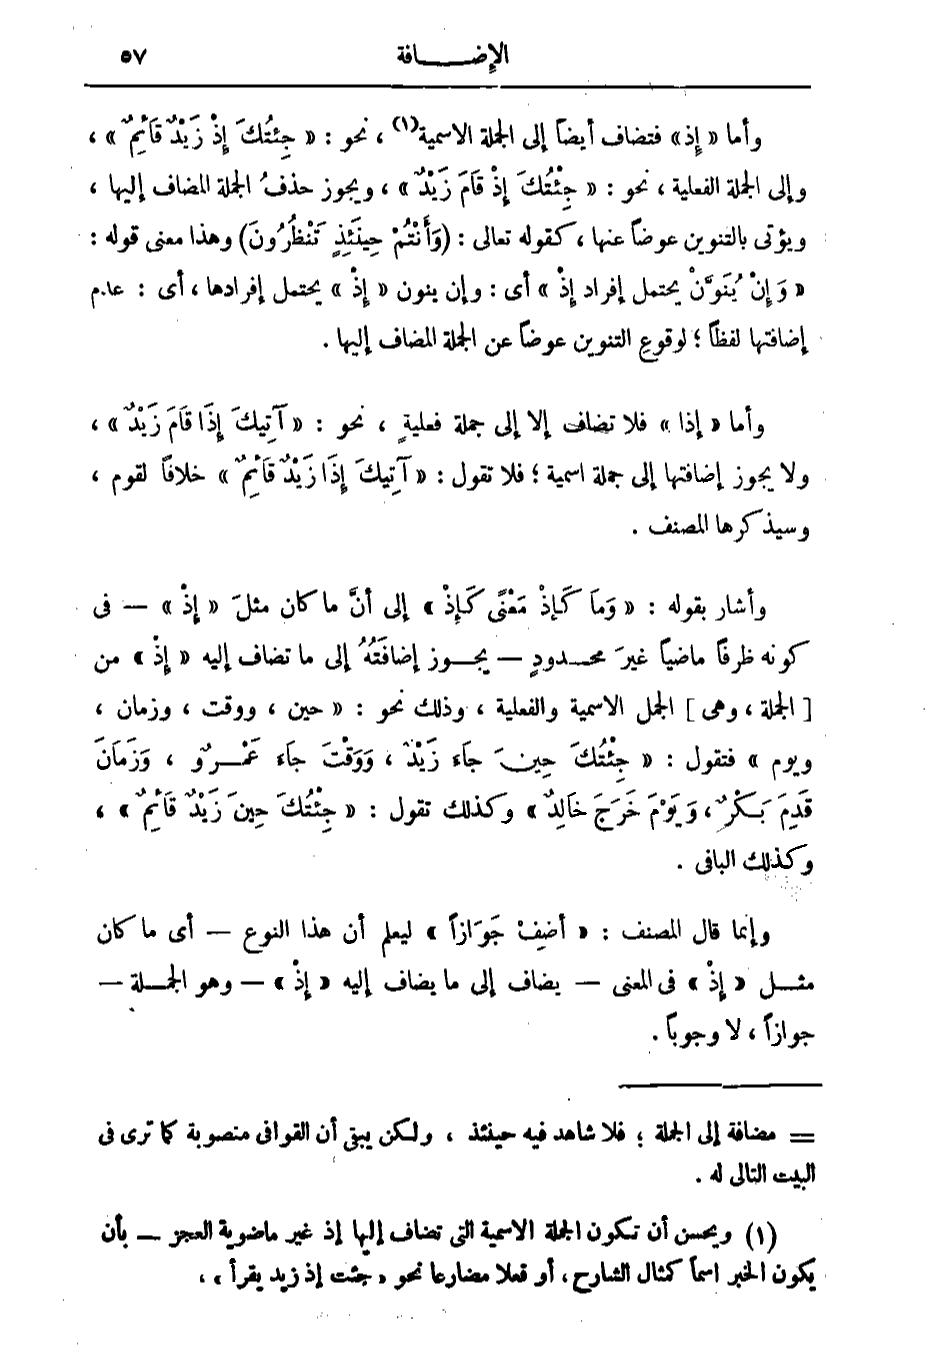 الإضـــــافة ٥٧
وأما « إِذ» فتضاف أيضاً إلى الجملة الاسمية(١) ، نحو : « جِئْتُكَ إِذْ زَيْدٌ قَائِمٌ » ،
وإلى الجملة الفعلية ، نحو : « جِئْتُكَ إِذْ قَامَ زَيْدٌ » ، ويجوز حذفُ الجملة المضاف إليها ،
ويؤتى بالتنوين عوضاً عنها ، كقوله تعالى : (وَأَنْتُمْ حِينَئِذٍ تَنْظُرُونَ) وهذا معنى قوله :
« وَإِنْ يُنَوَّنْ يحتمل إفراد إِذْ » أى : وإن ينون « إِذْ » يحتمل إفرادها ، أى : عدم
إضافتها لفظاً ؛ لوقوعِ التنوين عوضاً عن الجملة المضاف إليها .
وأما « إذا » فلا تضاف إلا إلى جملة فعليةٍ ، نحو : « آتِيكَ إِذَا قَامَ زَيْدٌ » ،
ولا يجوز إضافتها إلى جملة اسمية ؛ فلا تقول : « آتِيكَ إِذَا زَيْدٌ قَائِمٌ » خلافاً لقوم ،
وسيذكرها المصنف .
وأشار بقوله : « وَمَا كَإِذْ مَعْنًى كَإِذْ » إلى أنَّ ما كان مثلَ « إِذْ » — فى
كونه ظرفًا ماضياً غيرَ محـدودٍ — يجـوز إضافَتُهُ إلى ما تضاف إليه « إِذْ » من
[ الجملة ، وهى ] الجمل الاسمية والفعلية ، وذلك نحو : « حين ، ووقت ، وزمان ،
ويوم » فتقول : « جِئْتُكَ حِينَ جَاءَ زَيْدٌ ، وَوَقْتَ جَاءَ عَمْـرٌو ، وَزَمَانَ
قَدِمَ بَكْرٌ ، وَيَوْمَ خَرَجَ خَالِدٌ » وكذلك تقول : « جِئْتُكَ حِينَ زَيْدٌ قَائِمٌ » ،
وكذلك الباقى .
وإنما قال المصنف : « أضِفْ جَوَازاً » ليعلم أن هذا النوع — أى ما كان
مثـل « إِذْ » فى المعنى — يضاف إلى ما يضاف إليه « إِذْ » — وهو الجمـلة —
جوازاً ، لا وجوباً .
= مضافة إلى الجملة ؛ فلا شاهد فيه حينئذ ، ولكن يبقى أن القوافى منصوبة كما ترى فى
البيت التالى له .
(١) ويحسن أن تكون الجملة الاسمية التى تضاف إليها إذ غير ماضوية العجز — بأن
يكون الخبر اسماً كمثال الشارح ، أو فعلا مضارعا نحو « جئت إذ زيد يقرأ » ،